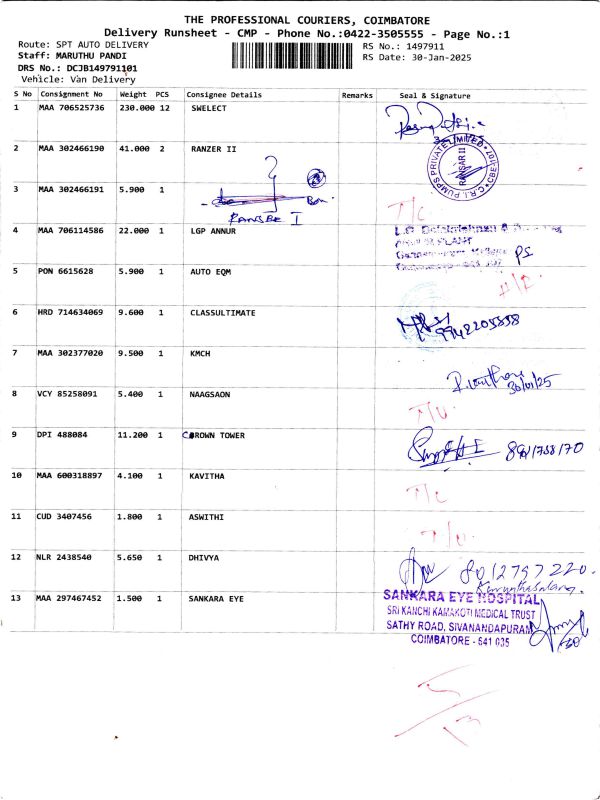 THE PROFESSIONAL COURIERS, COIMBATORE
Delivery Runsheet - CMP - Phone No.:0422-3505555 - Page No.:1
Route: SPT AUTO DELIVERY
RS No.: 1497911
Staff: MARUTHU PANDI
RS Date: 30-Jan-2025
DRS No.: DCJB149791101
Vehicle: Van Delivery
S No Consignment No Weight PCS Consignee Details Remarks Seal & Signature
1 MAA 706525736 230.000 12 SWELECT
2 MAA 302466190 41.000 2 RANZER II
C.R.I. PUMPS PRIVATE LIMITED
RANSAR II
3 MAA 302466191 5.900 1
RANSBE I
T/C
4 MAA 706114586 22.000 1 LGP ANNUR
5 PON 6615628 5.900 1 AUTO EQM
6 HRD 714634069 9.600 1 CLASSULTIMATE
7 MAA 302377020 9.500 1 KMCH
30/01/25
8 VCY 85258091 5.400 1 NAAGSAON
T/U
9 DPI 488084 11.200 1 CROWN TOWER
10 MAA 600318897 4.100 1 KAVITHA
T/C
11 CUD 3407456 1.800 1 ASWITHI
T/U
12 NLR 2438540 5.650 1 DHIVYA
8012797220
13 MAA 297467452 1.500 1 SANKARA EYE
SANKARA EYE HOSPITAL
SRI KANCHI KAMAKOTI MEDICAL TRUST
SATHY ROAD, SIVANANDAPURAM
COIMBATORE - 641 035
5
13